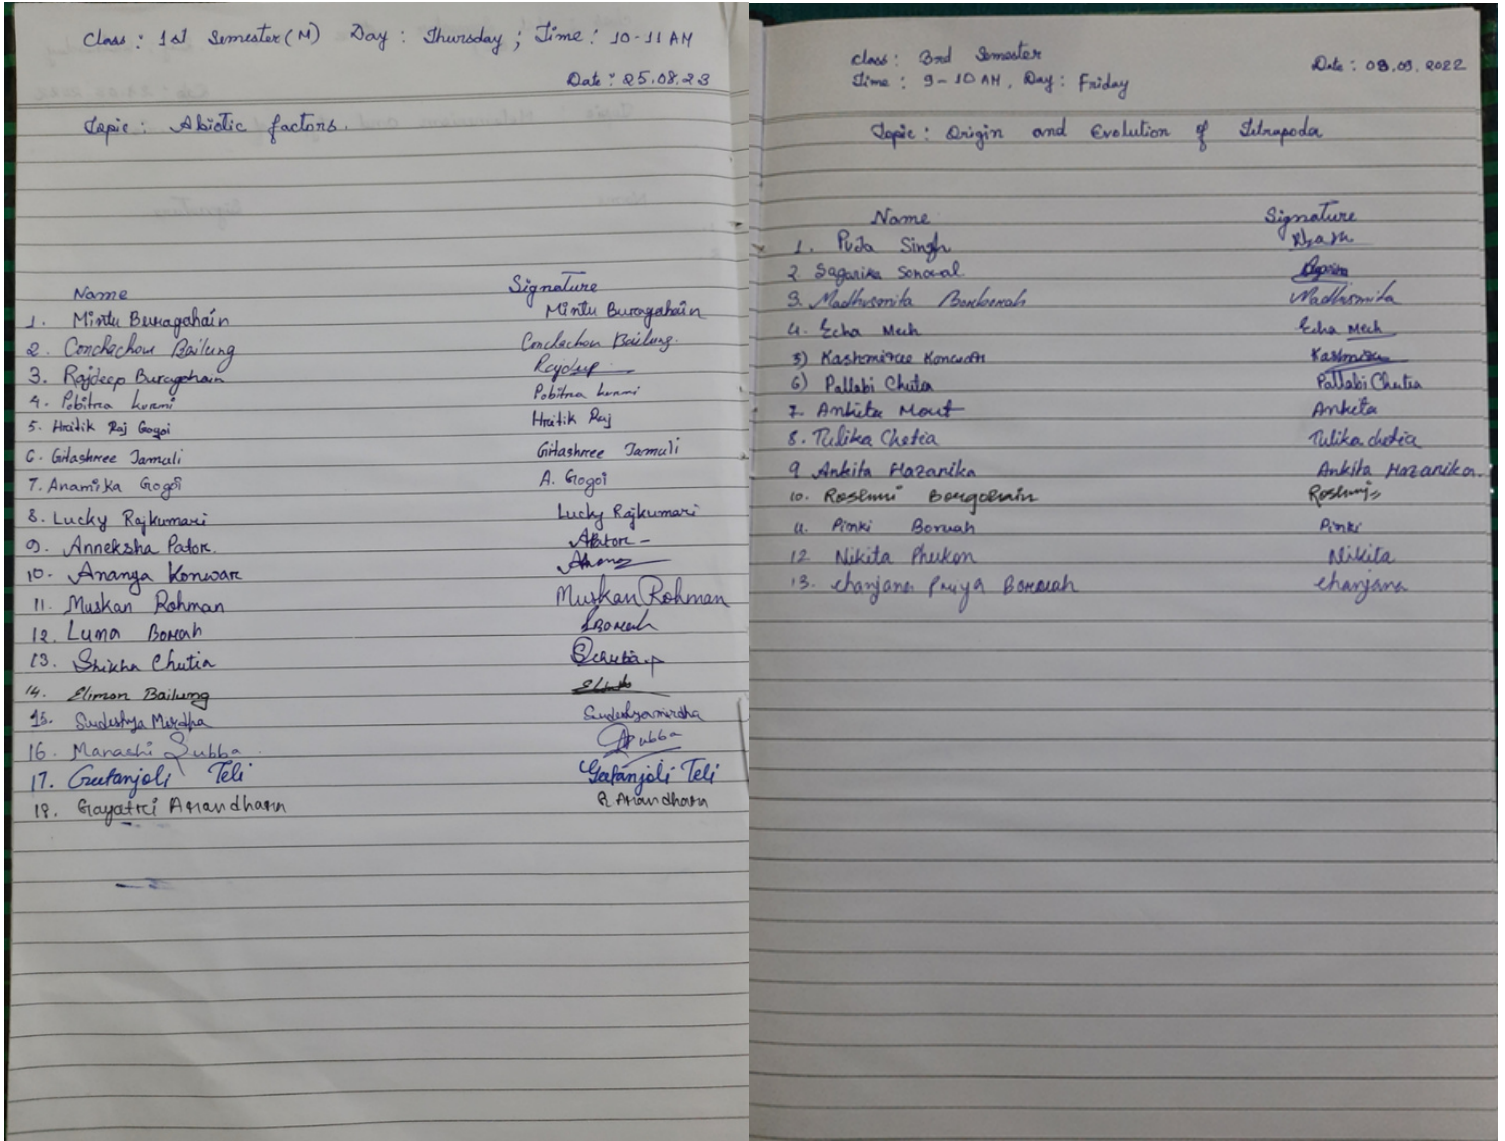 Class : 1st Semester(M) Day : Thursday ; Time : 10-11 AM
Date : 25.08.23
Topic : Abiotic factors.
Name Signature
1. Mintu Buragahain Mintu Buragahain
2. Conchechow Bailung Conchechow Bailung.
3. Rajdeep Buragohain Rajdeep
4. Pobitra kurmi Pobitra kurmi
5. Hritik Raj Gogoi Hritik Raj
6. Gitashree Jamuli Gitashree Jamuli
7. Anamika Gogoi A. Gogoi
8. Lucky Rajkumari Lucky Rajkumari
9. Anneksha Pator. APator
10. Ananga Konwar
11. Muskan Rohman Muskan Rohman
12. Luna Borah LBorah
13. Shikha Chutia
14. Elimon Bailung
15. Sudeshya Mirdha Sudeshyamirdha
16. Manashi Subba
17. Geetanjoli Teli Geetanjoli Teli
18. Gayatri Anandhara
Class : 3rd Semester Date : 09.09.2022
Time : 9-10 AM, Day : Friday
Topic : Origin and Evolution of Tetrapoda
Name Signature
1. Puja Singh
2. Sagarika Sonowal
3. Madhusmita Borborah Madhusmita
4. Echa Mech Echa Mech
5) Kashmiree Konwar
6) Pallabi Chutia Pallabi Chutia
7. Ankita Mout Ankita
8. Tulika Chetia Tulika chetia
9 Ankita Hazarika Ankita Hazarika.
10. Roshmi Borgohain Roshmi
11. Pinki Boruah Pinki
12 Nikita Phukon Nikita
13. Chanjana Priya Borouah Chanjana